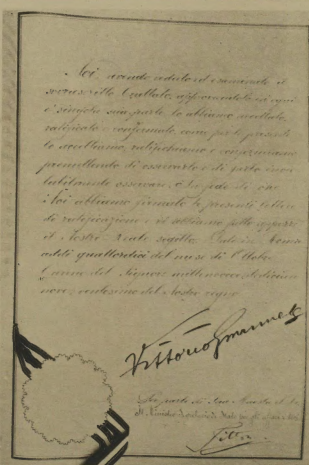 Noi avendo veduto ed esaminato il
sovrascritto Trattato, approvandolo in ogni
e singola sua parte lo abbiamo accettato,
ratificato e confermato, come per le presenti
lo accettiamo, ratifichiamo e confermiamo
promettendo di osservarlo e di farlo invio
labilmente osservare. In fede di che
Noi abbiamo firmato le presenti lettere
di ratificazione e vi abbiamo fatto apporre
il Nostro Reale sigillo. Dato in Roma
addì quattordici del mese di Ottobre
l'anno del Signore millenovecentodiciannove,
ventesimo del Nostro regno
Vittorio Emanuele
Da parte di Sua Maestà il Re
Il Ministro Segretario di Stato per gli